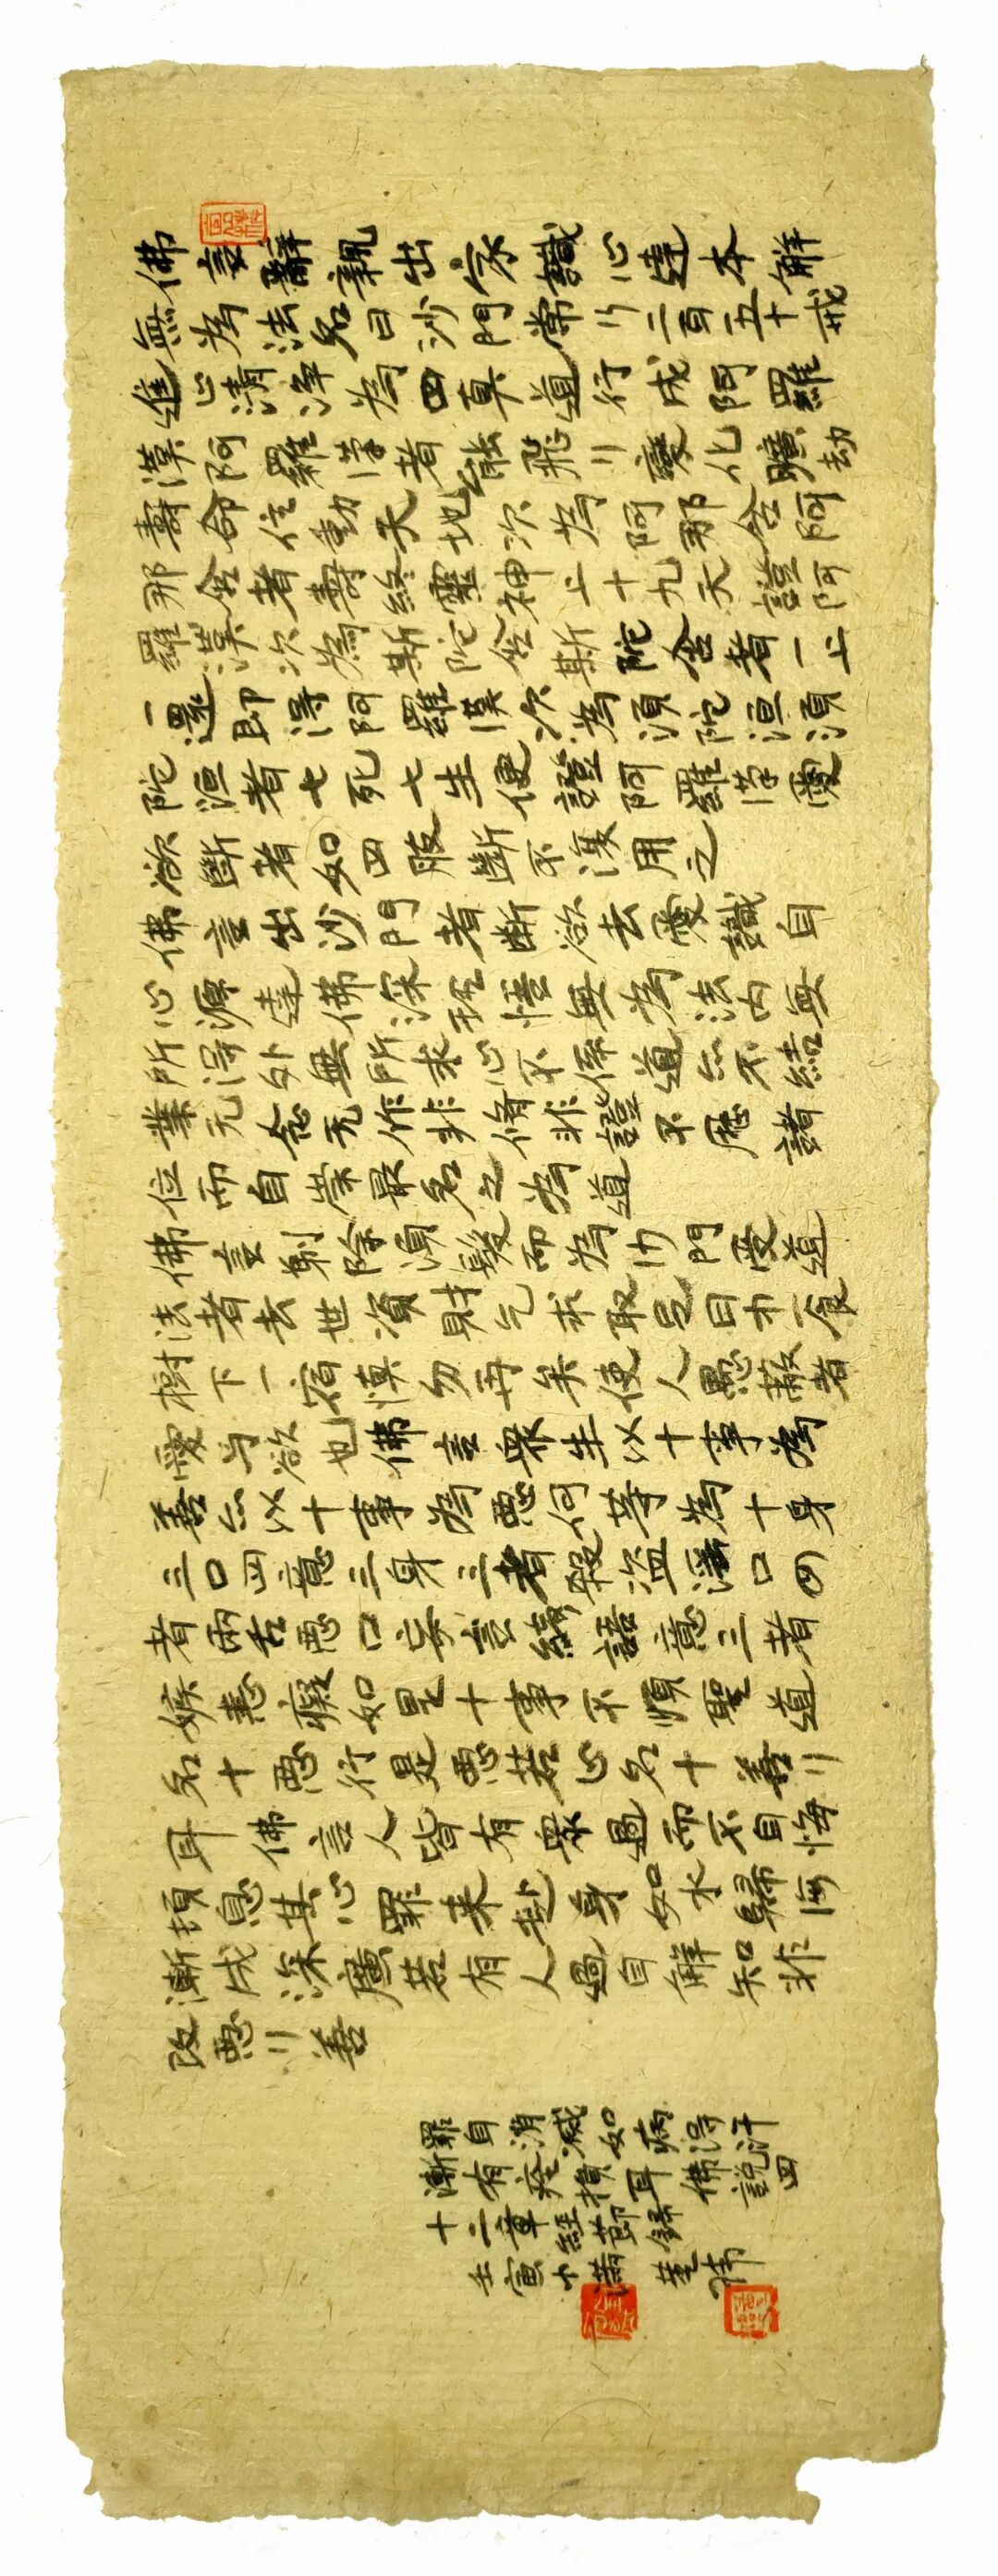 佛言辭親出家識心達本解
無為法名曰沙門常行二百五十戒
進心清淨為四真道行成阿羅
漢阿羅漢者能飛行變化曠劫
壽命住動天地次為阿那含阿
那含者壽終靈神上十九天證阿
羅漢次為斯陀含斯陀含者一上
一還即得阿羅漢次為須陀洹須
陀洹者七死七生便證阿羅漢愛
欲斷者如四肢斷不復用之
佛言出沙門者断欲去愛識自
心源達佛深理悟無為法内無
所得外無所求心不係道亦不結
業无念无作非脩非證不歷諸
位而自崇最名之為道
佛言剃除須髮而為沙門受道
法者去世資財乞求取足日中一食
樹下一宿慎勿再矣使人愚蔽者
愛与欲也佛言眾生以十事為
善亦以十事為惡何等為十身
三口四意三身三者殺盜淫口四
者兩舌惡口妄言綺語意三者
嫉恚癡如是十事不順聖道
名十惡行是惡若止名十善行
耳佛言人皆有眾過而不自悔
頓息其心罪來赴身如水歸海
漸成深廣若有人過自解知非
改惡行善
罪自消滅如病得汗
漸有痊損耳佛說四
十二章經節錄
壬寅小滿